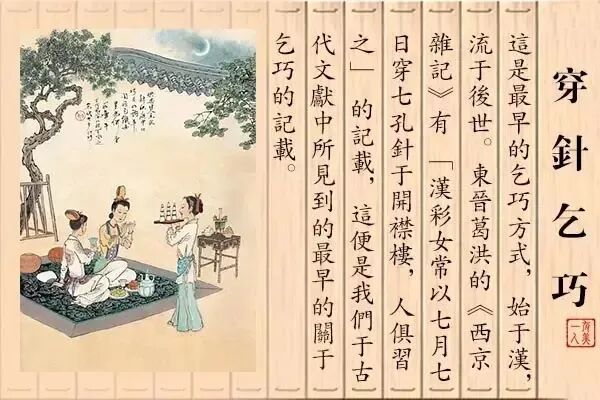 穿針乞巧
這是最早的乞巧方式，始于漢，
流于後世。東晉葛洪的《西京
雜記》有「漢彩女常以七月七
日穿七孔針于開襟樓，人俱習
之」的記載，這便是我們于古
代文獻中所見到的最早的關于
乞巧的記載。